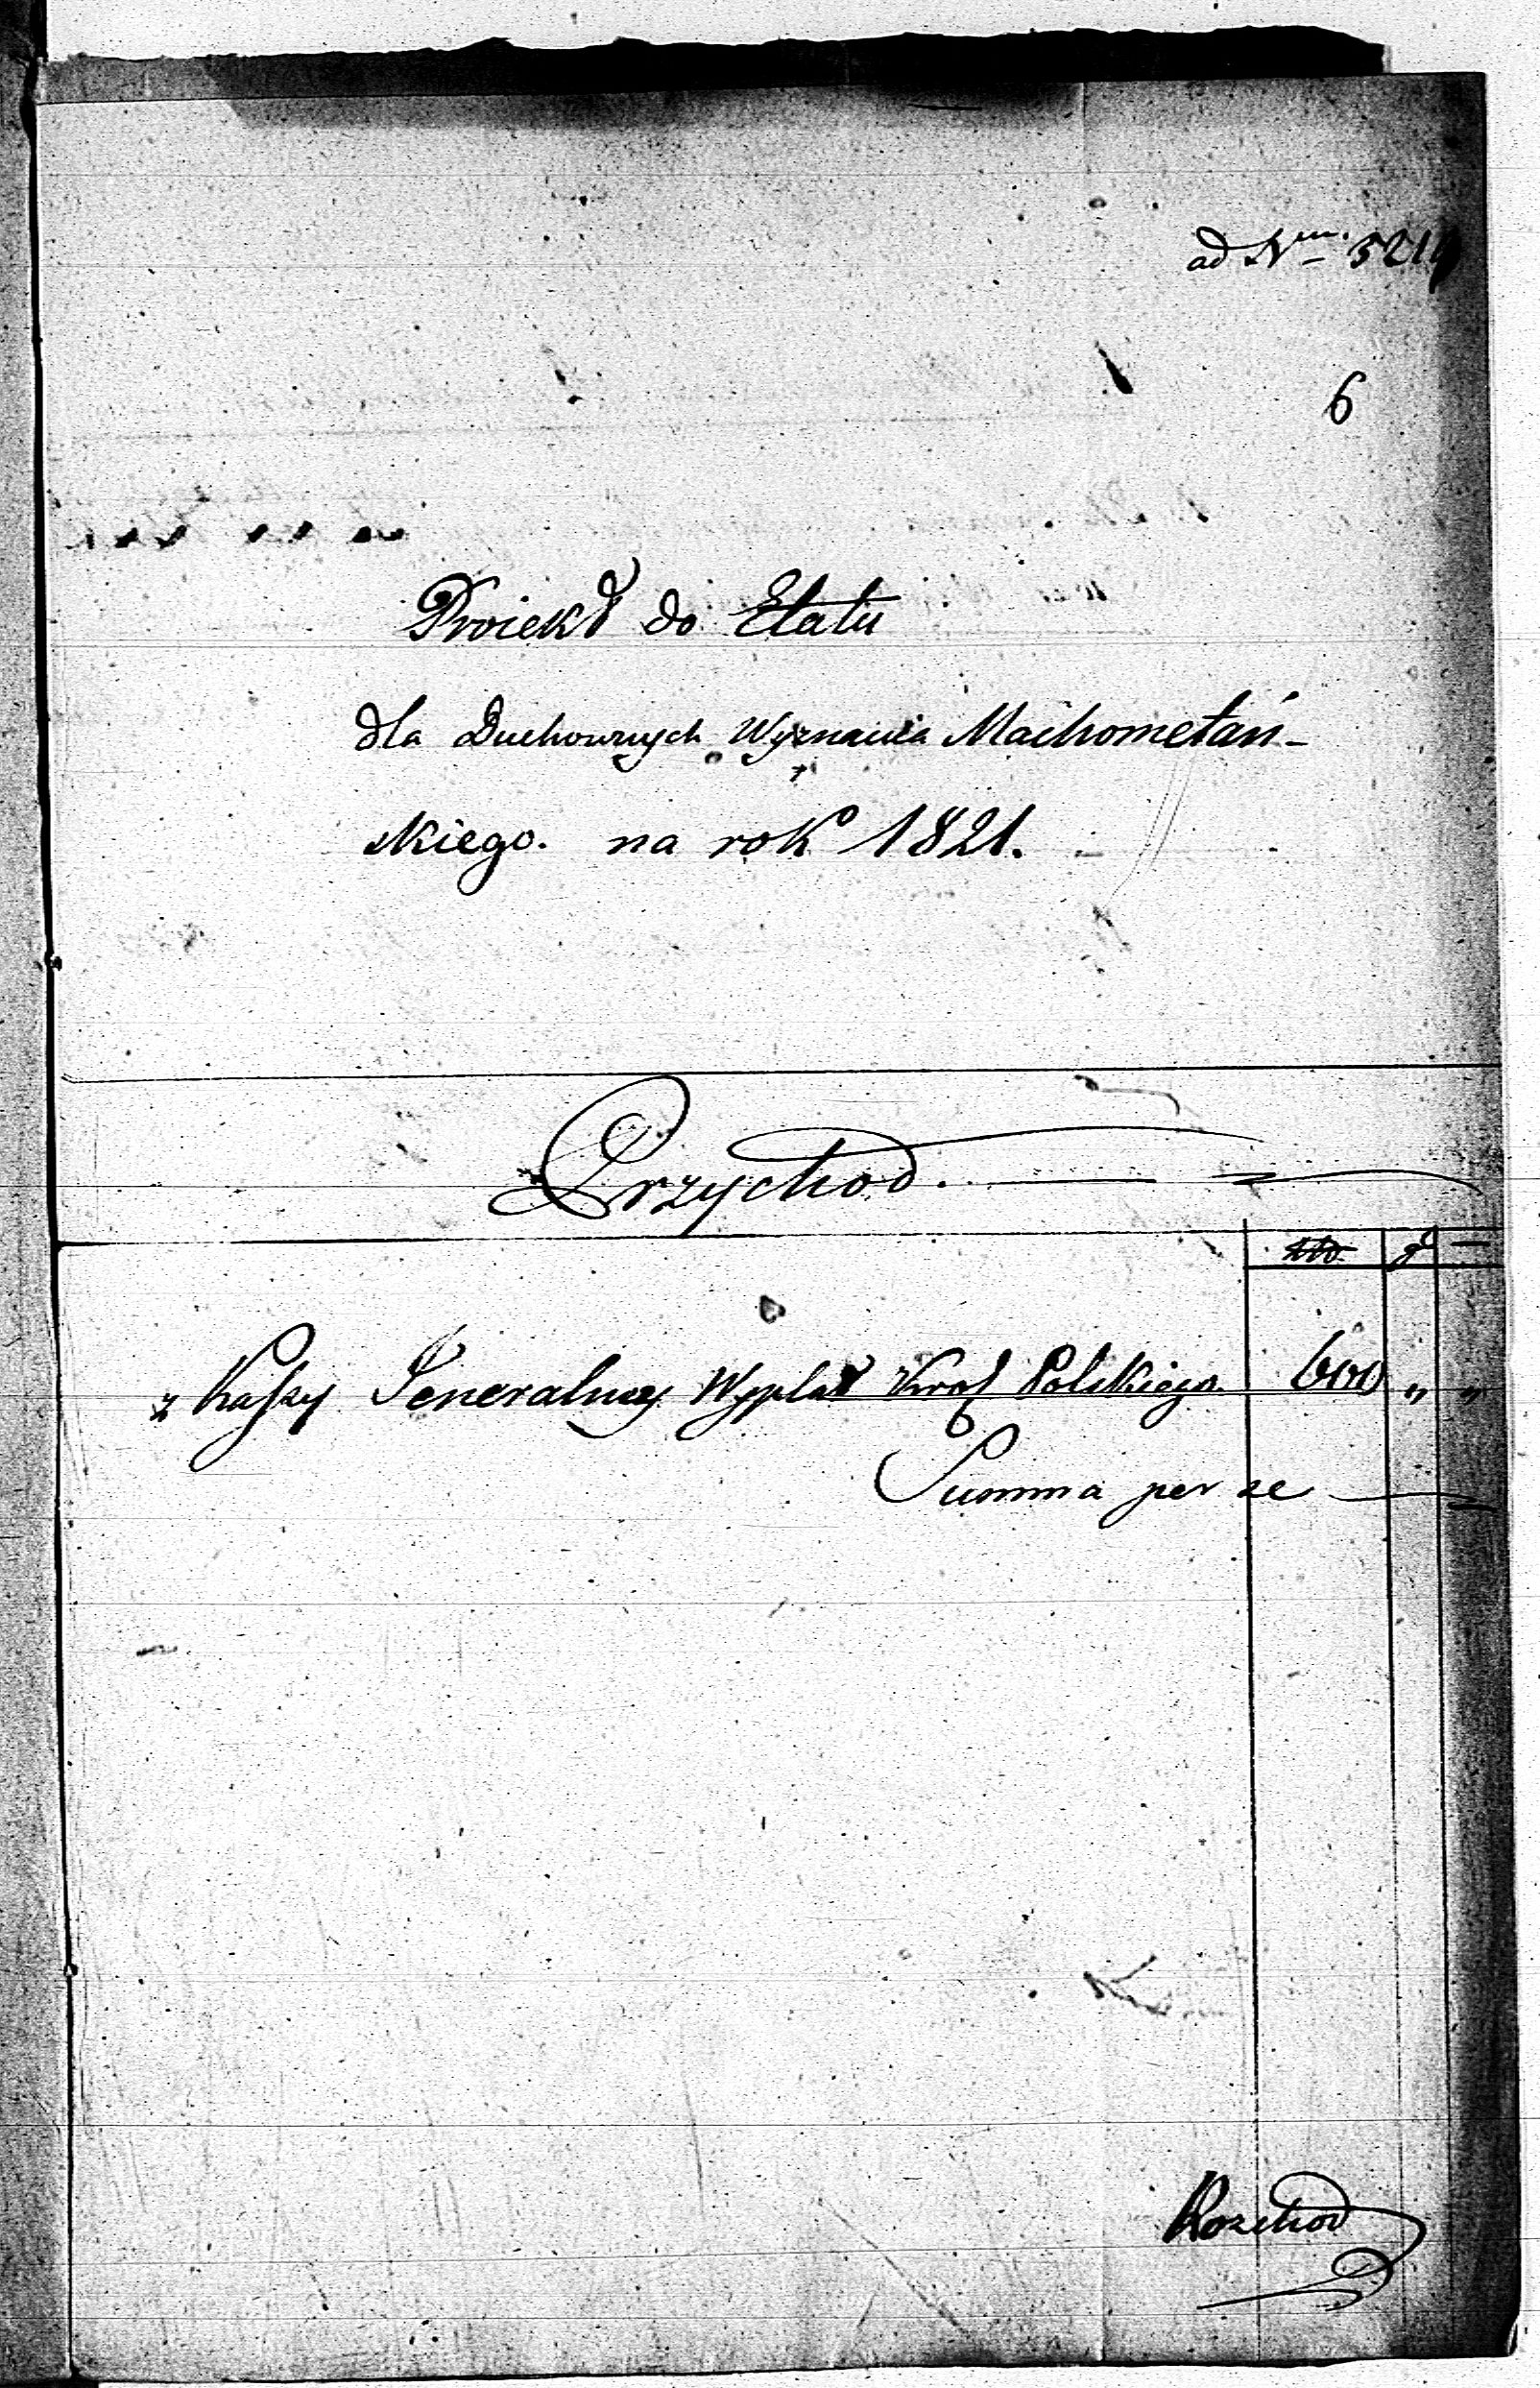 ad Nrum 5219
6
Proiekt do Etatu
dla Duchownych Wyznania Machometań-
skiego. na rok 1821.
Przychod.
złb. g
z Kassy Jeneralney Wypłat Krol Polskiego. 600 „ „
Summa per se
Rozchod